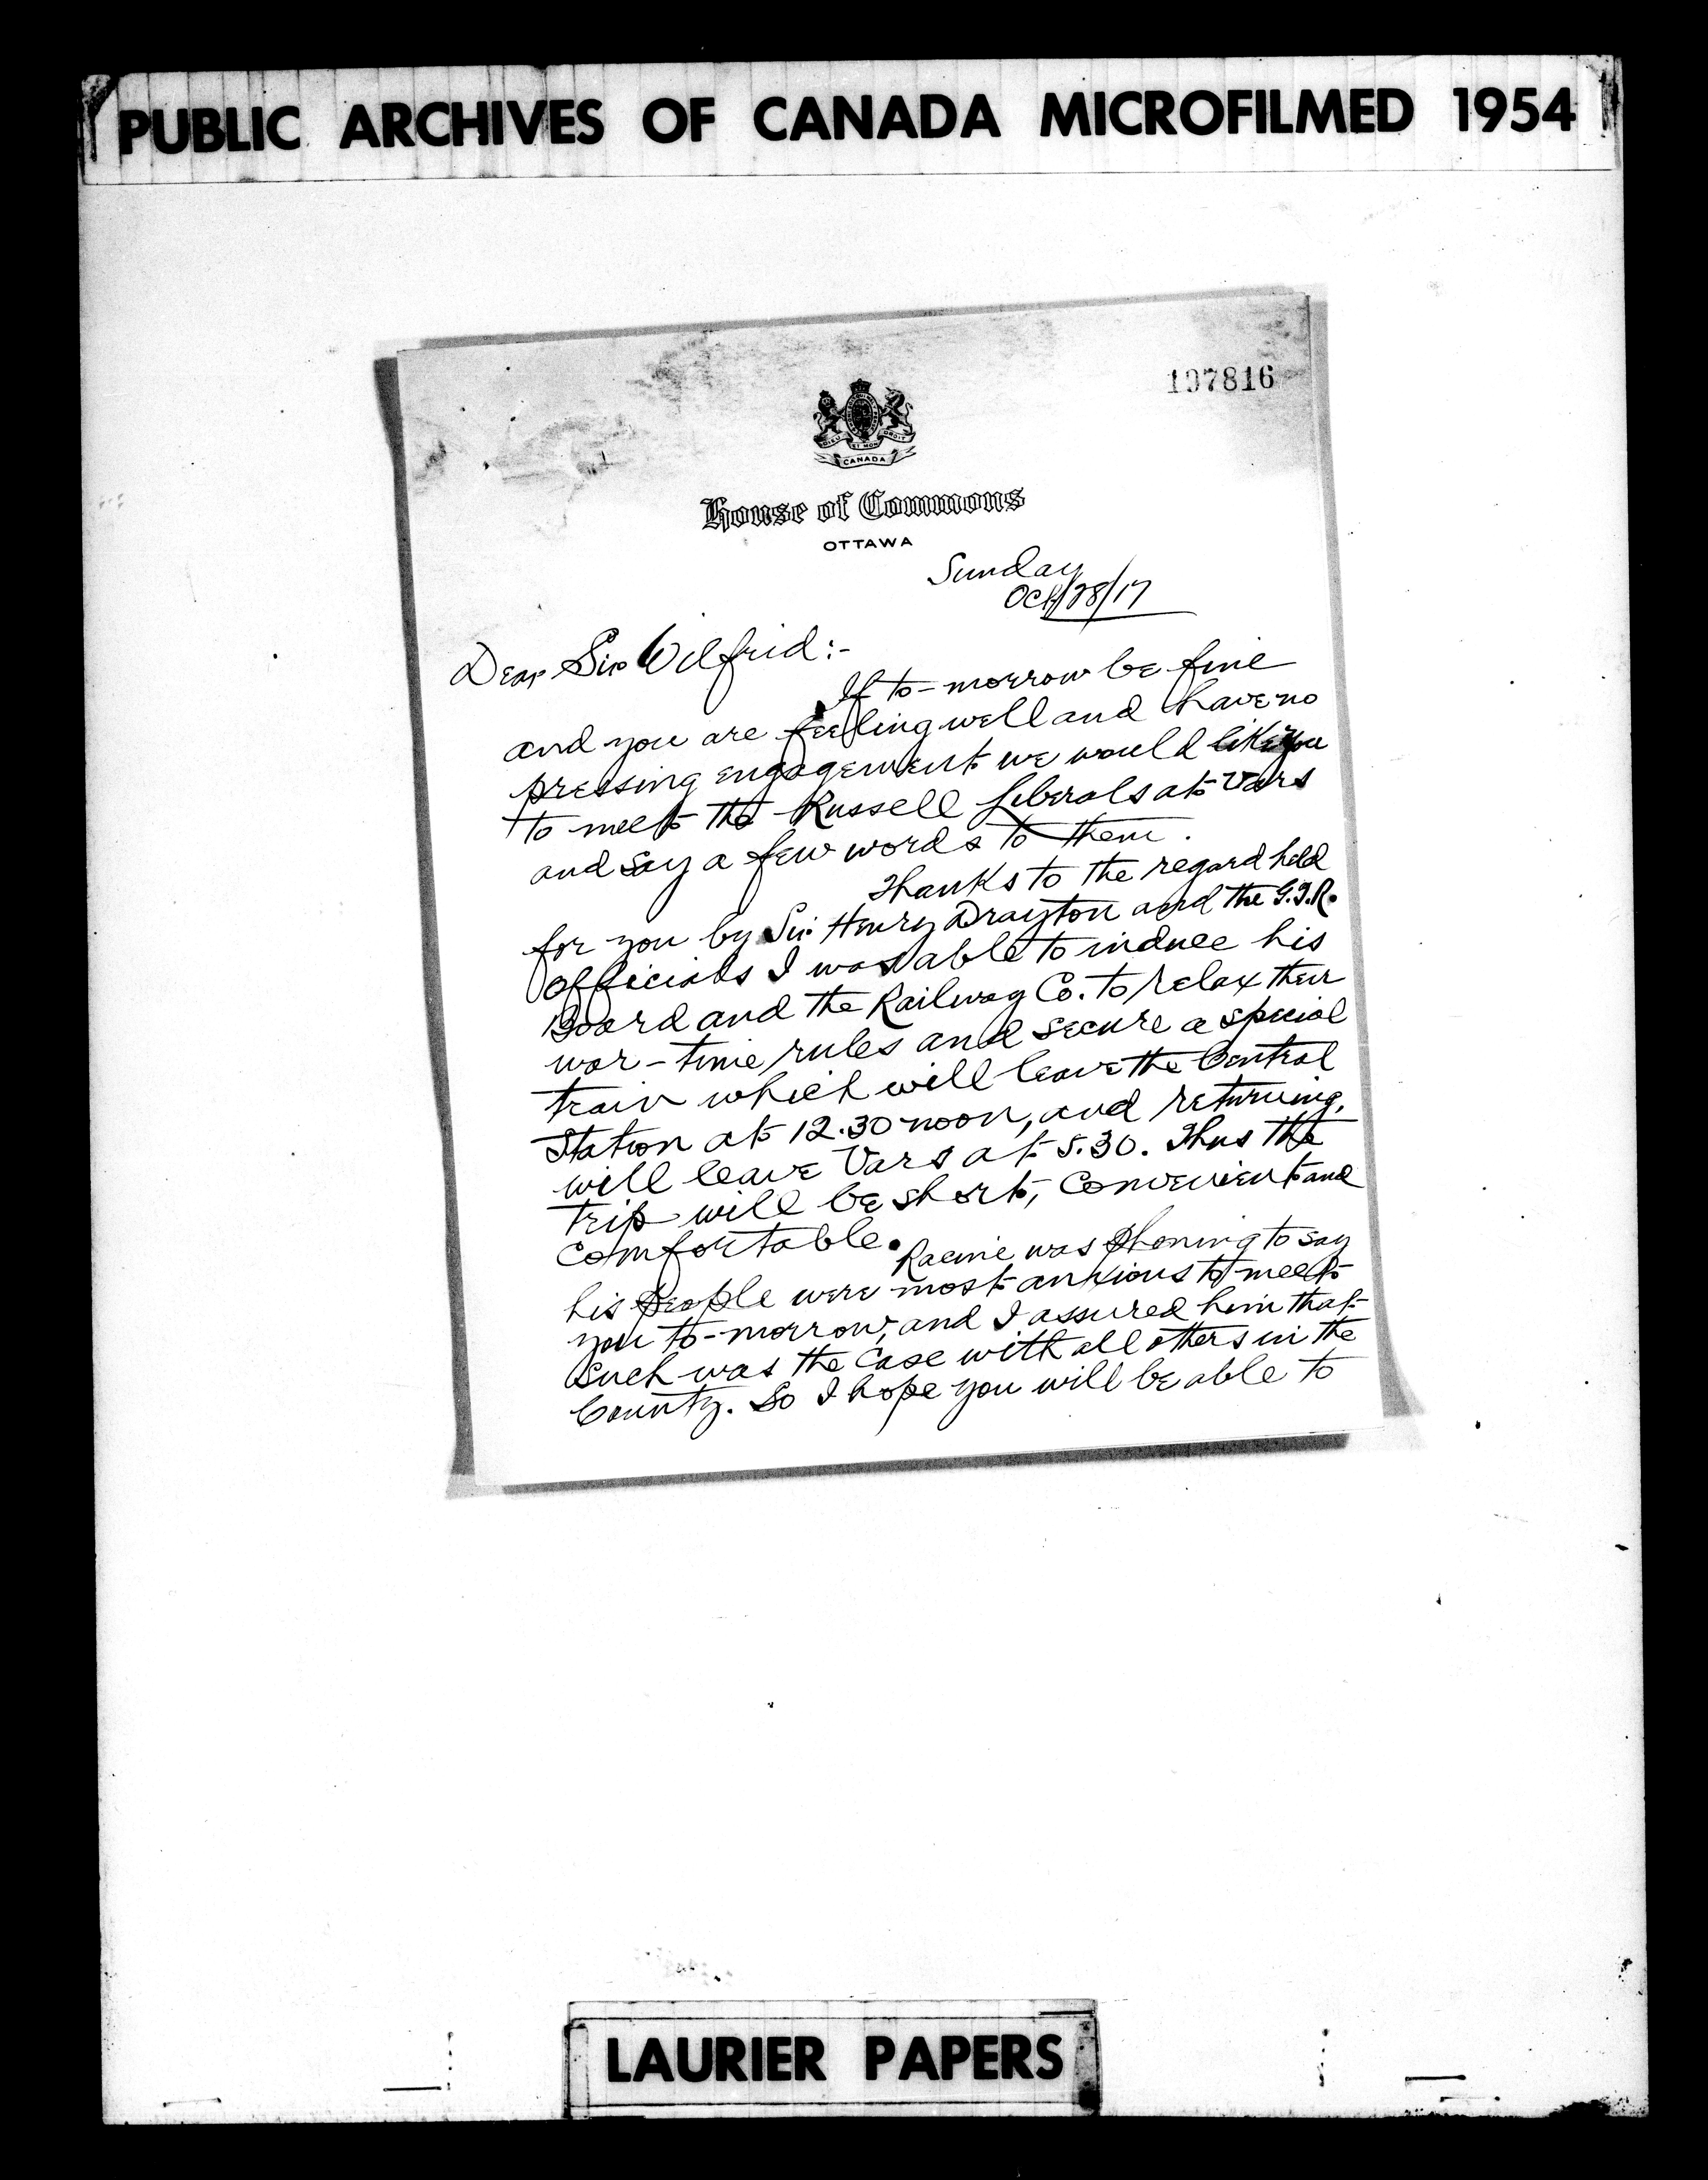 PUBLIC ARCHIVES OF CANADA MICROFILMED 1954
197816
DIEU ET MON DROIT
CANADA
House of Commons
OTTAWA
Sunday
Oct/28/17
Dear Sir Wilfrid:-
If to-morrow be fine
and you are feeling well and have no
pressing engagement we would like you
to meet the Russell Liberals at Vars
and say a few words to them.
Thanks to the regard held
for you by Sir Henry Drayton and the G.T.R.
officials I was able to induce his
Board and the Railway Co. to relax their
war-time rules and secure a special
train which will leave the Central
Station at 12.30 noon, and returning,
will leave Vars at 5.30. Thus the
trip will be short, convenient and
comfortable.
Racine was phoning to say
his people were most anxious to meet
you to-morrow, and I assured him that
such was the case with all others in the
County. So I hope you will be able to
LAURIER PAPERS